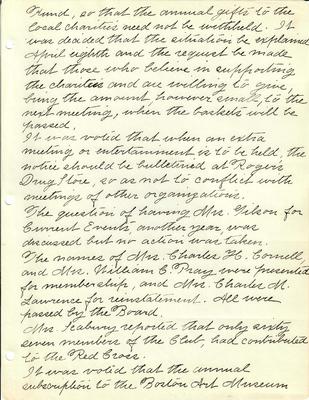 Fund, so that the annual gifts to the
local charities need not be withheld. It
was decided that the situation be explained
April eighth and the request be made
that those who believe in supporting
the charities and are willing to give,
bring the amount, however small, to the
next meeting, when the baskets will be
passed.
It was voted that when an extra
meeting or entertainment is to be held, the
notice should be bulletined at Rogers
Drug Store, so as not to conflict with
meetings of other organizations.
The question of having Mrs. Gilson for
Current Events, another year, was
discussed but no action was taken.
The names of Mrs. Charles H. Cornell,
and Mrs. William C. Pray were presented
for membership, and Mrs. Charles M.
Lawrence for reinstatement. All were
passed by the Board.
Mrs. Seabury reported that only sixty
seven members of the Club, had contributed
to the Red Cross.
It was voted that the annual
subscription to the Boston Art Museum